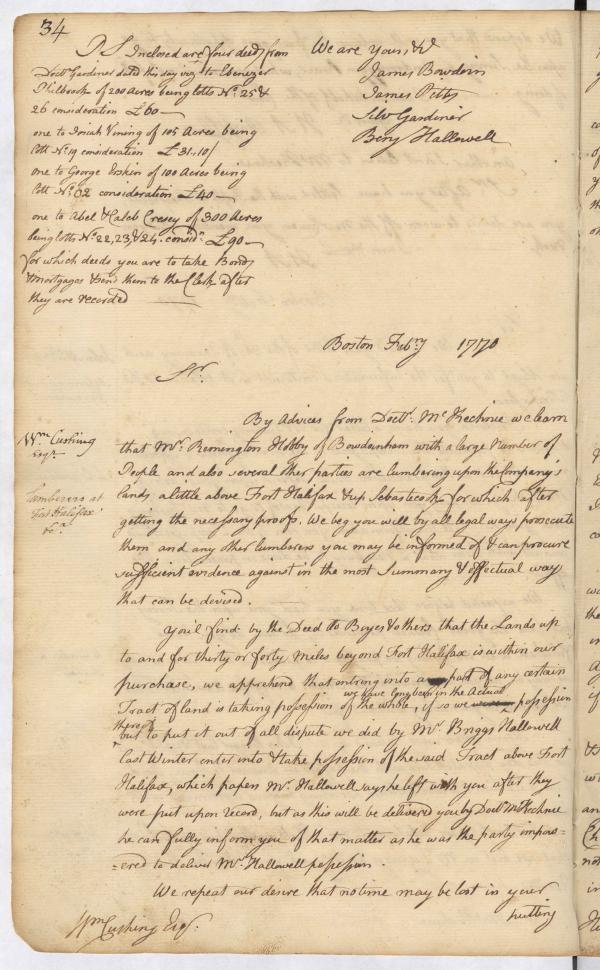 34
P S Inclosed are four deeds from
Doctr Gardiner dated this day viz to Ebenezer
Philbrook of 200 Acres being lotts No. 25 &
26 consideration £60—
one to Josiah Vining of 105 Acres being
Lott No 19 consideration £31.10/
one to George Erskin of 100 Acres being
Lott No 62 consideration £40—
one to Abel & Caleb Cresey of 300 Acres
being lotts No. 22, 23, & 24. considn. £90—
for which deeds you are to take Bonds
& mortgages & send them to the Clerk after
they are recorded
We are Yours, &c
James Bowdoin
James Pitts
Silv Gardiner
Benj Hallowell
Boston Febry 1770
Sr.
Wm Cushing
Esqr
Lumberers at
Fort Halifax
&ca
By Advices from Doctr. McKechnie we learn
that Mr. Remington Hobby of Bowdoinham with a large Number of
People and also several other parties are lumbering upon the Company's
lands a little above Fort Halifax & up Sebasticook, for which after
getting the necessary proofs. We beg you will by all legal ways prosecute
them and any other lumberers you may be informed of & can procure
sufficient evidence against in the most Summary & effectual way
that can be devised.
You'l find by the Deed to Boyes & others that the Lands up
to and for thirty or forty Miles beyond Fort Halifax is within our
purchase, we apprehend that entring into a part of any certain
Tract of land is taking possession of the whole, if so we possession
we have long been in the Actual
thereof
but to put it out of all dispute we did by Mr. Briggs Hallowell
last Winter enter into & take possession of the said Tract above Fort
Halifax, which papers Mr. Hallowell says he left with you after they
were put upon record, but as this will be delivered you by Doctr McKechnie
he can fully inform you of that matter as he was the party impow-
=ered to deliver Mr. Hallowell possession.
We repeat our desire that no time may be lost in your
putting
Wm Cushing Esqr.